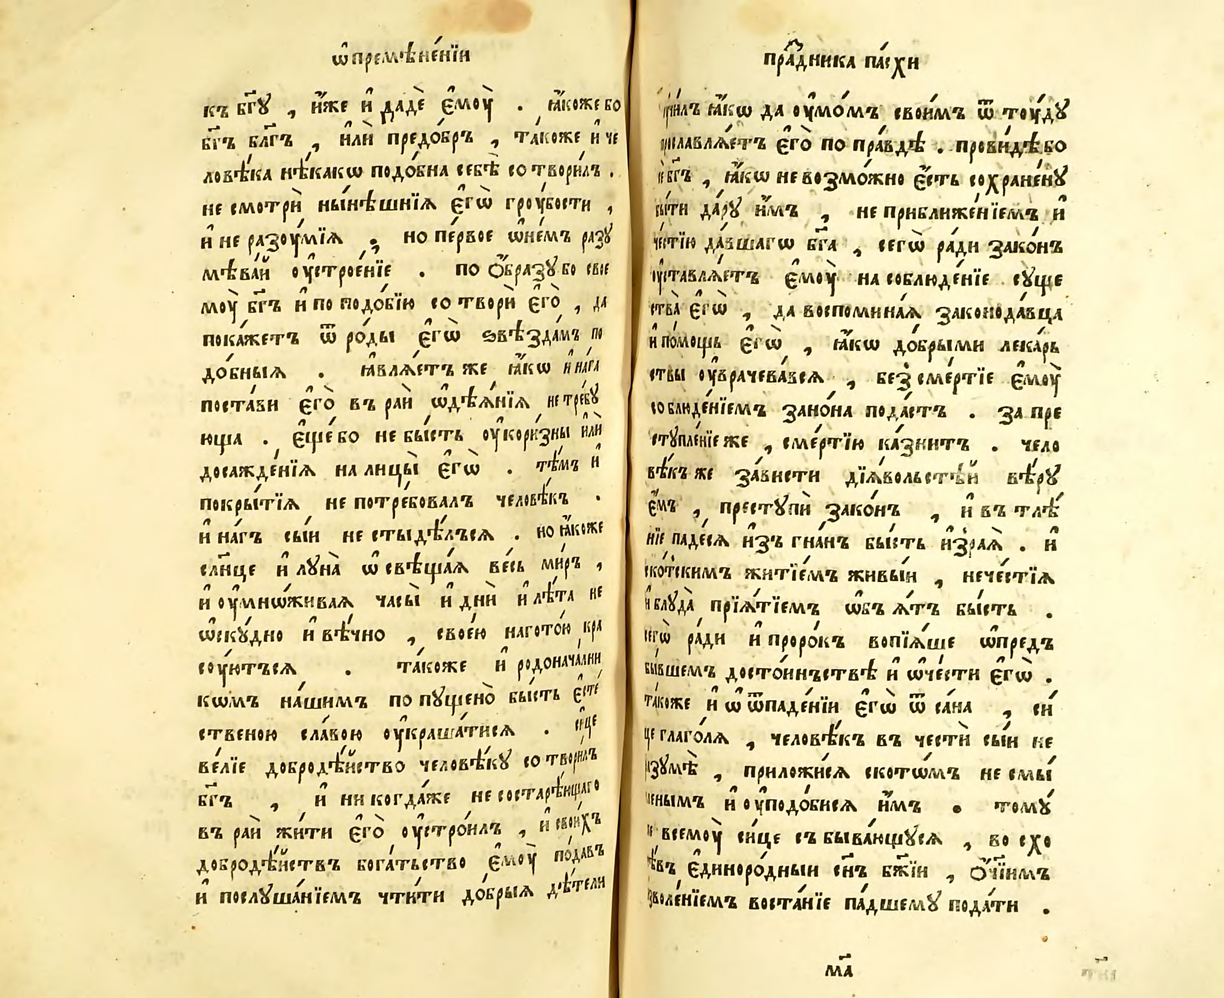 ѡ҆премѣне́нїи
къ бг҃ꙋ , и҆́же и҆ дадѐ є҆мꙋ̀ . ꙗ҆́коже бо
бг҃ъ бл҃гъ , и҆лѝ предо́бръ , та́коже и҆ че
ловѣ́ка нѣ́какѡ подо́бна себѣ̀ сотвори́лъ .
не смотрѝ ны́нѣшнїѧ є҆гѡ̀ грꙋ́бости ,
и҆ не разꙋ́мїѧ , но пе́рвое ѡ҆не́мъ разꙋ
мѣва́й оу҆строе́нїе . по ѻ҆́бразꙋ бо свое
моу̀ бг҃ъ и҆ по подо́бїю сотворѝ є҆го̀ , да
пока́жетъ ѿ ро́ды є҆гѡ̀ ѕвѣзда́мъ по
до́бныѧ . ꙗ҆влѧ́етъ же ꙗ҆́кѡ и҆ на́га
поста́ви є҆го̀ въ раѝ ѡ҆дѣѧ́нїѧ не тре́бꙋ
юща . є҆ще́ бо не бы́сть оу҆кори́зны и҆лѝ
досажде́нїѧ на лицы̀ є҆гѡ̀ . тѣ́мъ и҆
покры́тїѧ не потре́бовалъ человѣ́къ .
и҆ на́гъ сы́и не стыдѣ́лъсѧ . но ꙗ҆́коже
сл҃нце и҆ лꙋна̀ ѡ҆свѣща́ѧ ве́сь ми́ръ ,
и҆ оу҆мнѡ́живаѧ часы̀ и҆ днѝ и҆ лѣ́та не
ѡ҆скꙋ́дно и҆ вѣ́чно , свое́ю наготою кра
сꙋ́ютъсѧ . та́коже и҆ родонача́лни
кѡмъ на́шимъ попꙋщено̀ бы́сть є҆сте́
ственою сла́вою оу҆краша́тисѧ . си́це
ве́лїе добродѣ́йство человѣ́кꙋ сотвори́лъ
бг҃ъ , и҆ никогда́же не состарѣ́ющаго
въ раѝ жи́ти є҆го̀ оу҆стро́илъ , и҆ свои́хъ
добродѣ́йствъ бога́тьство є҆моу̀ пода́въ
и҆ послꙋша́нїемъ чти́ти до́брыѧ дѣ́тели
пра́здника па́схи
ꙗ҆́кѡ да оу҆мо́мъ свои́мъ ѿ тꙋ́дꙋ
є҆го̀ по пра́вдѣ . прови́дѣ бо
бг҃ъ , ꙗ҆́кѡ не возмо́жно є҆́сть сохране́нꙋ
бы́ти да́рꙋ и҆́мъ , не приближе́нїемъ и҆
че́стїю да́вшагѡ бг҃а , сегѡ̀ ра́ди зако́нъ
оу҆ставлѧ́етъ є҆моу̀ на соблюде́нїе сꙋще
ства̀ є҆гѡ̀ , да воспомина́ѧ законода́вца
и҆ по́мощь є҆гѡ̀ , ꙗ҆́кѡ до́брыми лека́рь
ствы оу҆врачева́всѧ , безсме́ртїе є҆моу̀
соблюде́нїемъ зако́на пода́стъ . за пре
стꙋпле́нїе же , сме́ртїю ка́знитъ . чело
вѣ́къ же за́висти дїѧ́вольстѣй вѣ́рꙋ
є҆́мъ , престꙋпѝ зако́нъ , и҆ въ тлѣ́
нїе паде́сѧ и҆зъгнанъ бы́сть и҆зраѧ̀ . и҆
ско́тскимъ житїе́мъ живы́и , нече́стїѧ
и҆ блꙋда̀ прїѧ́тїемъ ѡ҆бъѧ́тъ бы́сть .
сегѡ̀ ра́ди и҆ проро́къ вопїѧ́ше ѡ҆предъ
бы́вшемъ досто́инъствѣ и҆ ѡ҆че́сти є҆гѡ̀ .
та́коже и҆ ѡ҆ ѿпаде́нїи є҆гѡ̀ ѿ са́на , си́
це глаго́лѧ , человѣ́къ въ че́сти сы́и не
разꙋмѣ̀ , приложи́сѧ ското́мъ не смы́
сленымъ и҆ оу҆подо́бисѧ и҆́мъ . томꙋ́
же всемꙋ̀ си́це събыва́ющꙋсѧ , восхо
тѣ́въ є҆диноро́дныи сн҃ъ бж҃їи , ѻ҆ч҃їимъ
изволе́нїемъ воста́нїе па́дшемꙋ пода́ти .
м҃а